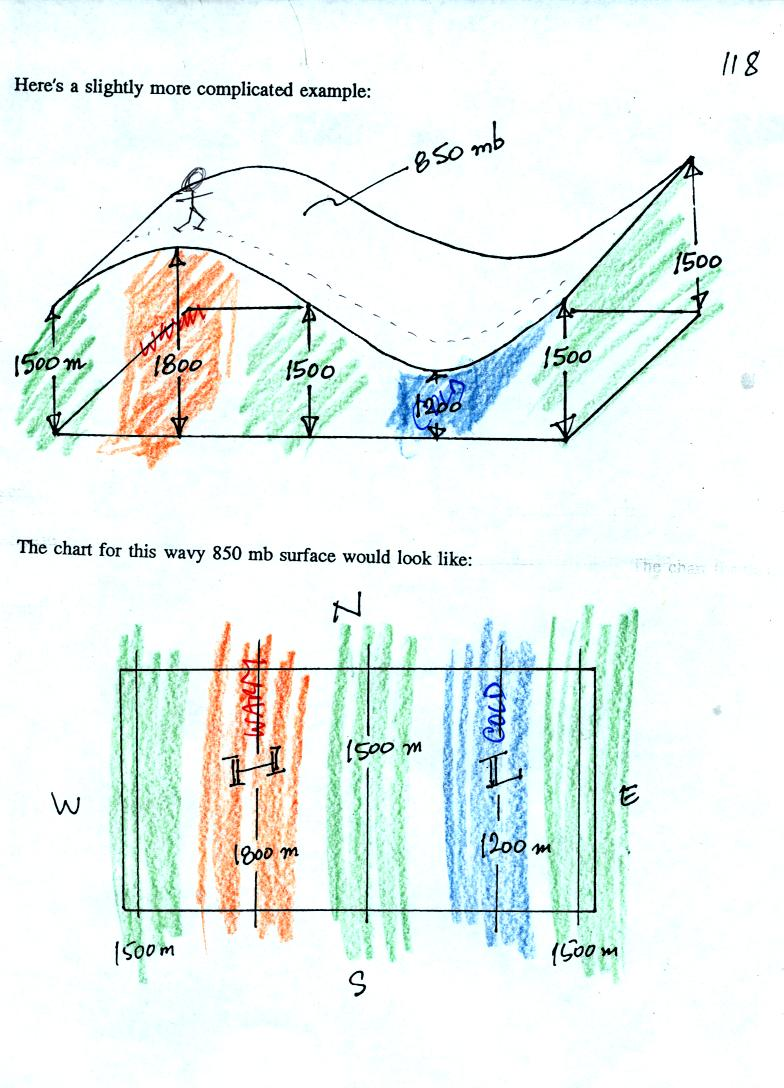 118
Here's a slightly more complicated example:
850 mb
1500
1500 m
warm
1800
1500
COLD
1200
1500
The chart for this wavy 850 mb surface would look like:
The chart
N
WARM
COLD
1500 m
H
L
W
E
1800 m
1200 m
1500 m
1500 m
S